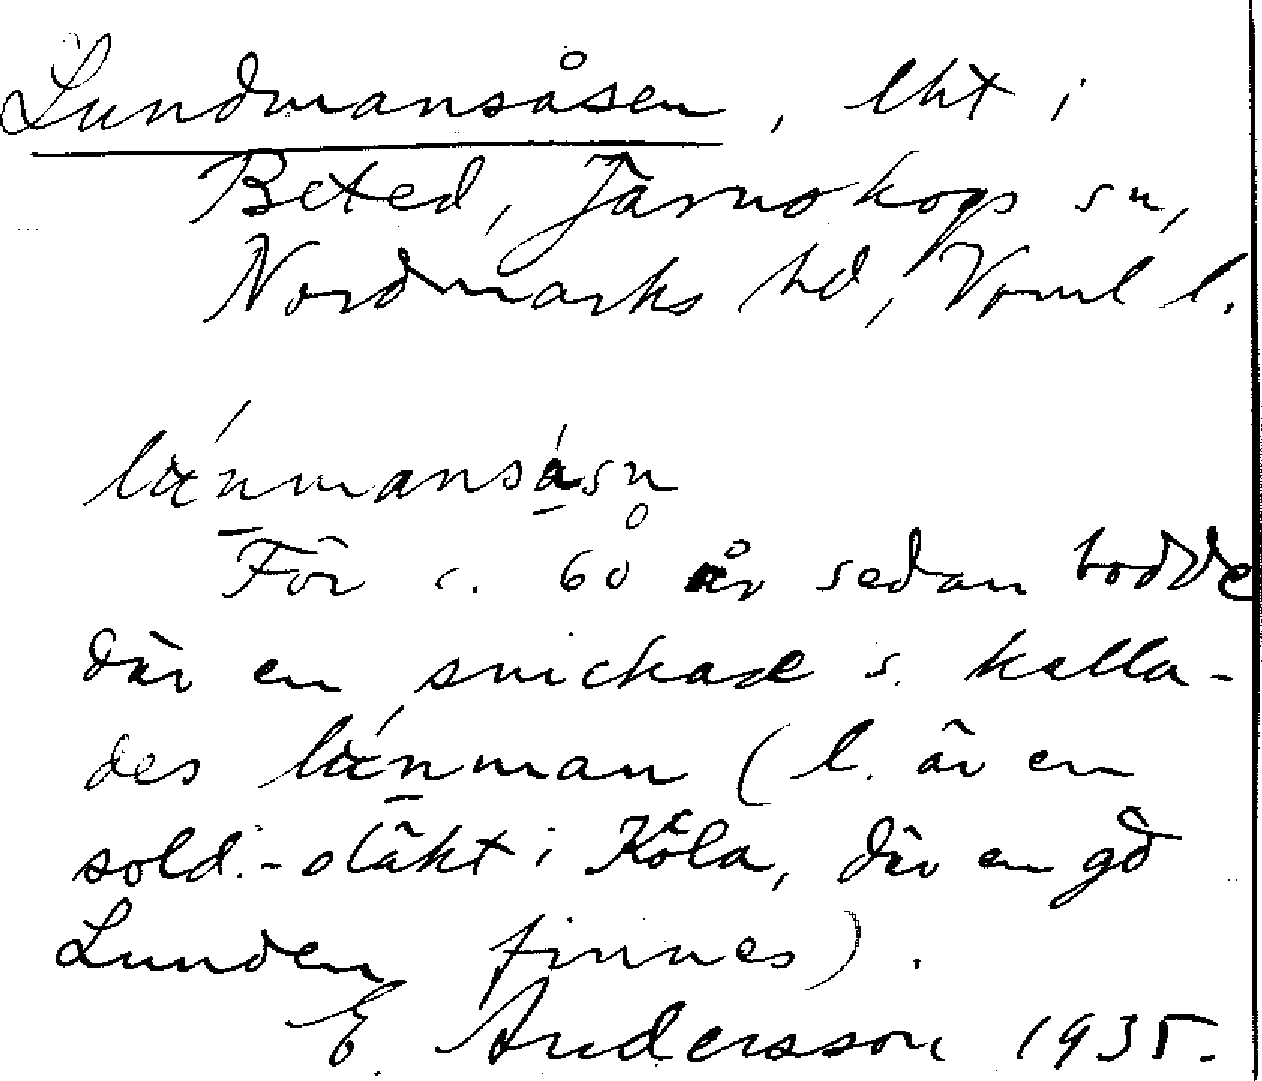 Lundmansåsen, lht i
Beted, Järnskogs sn,
Nordmarks hd, Vrml l.
lænmansåsn
För c. 60 år sedan bodde
där en snickare s. kalla-
des lænman (l. är en
sold.-släkt i Köla, där en gd
Lunden finnes).
E. Andersson 1935.